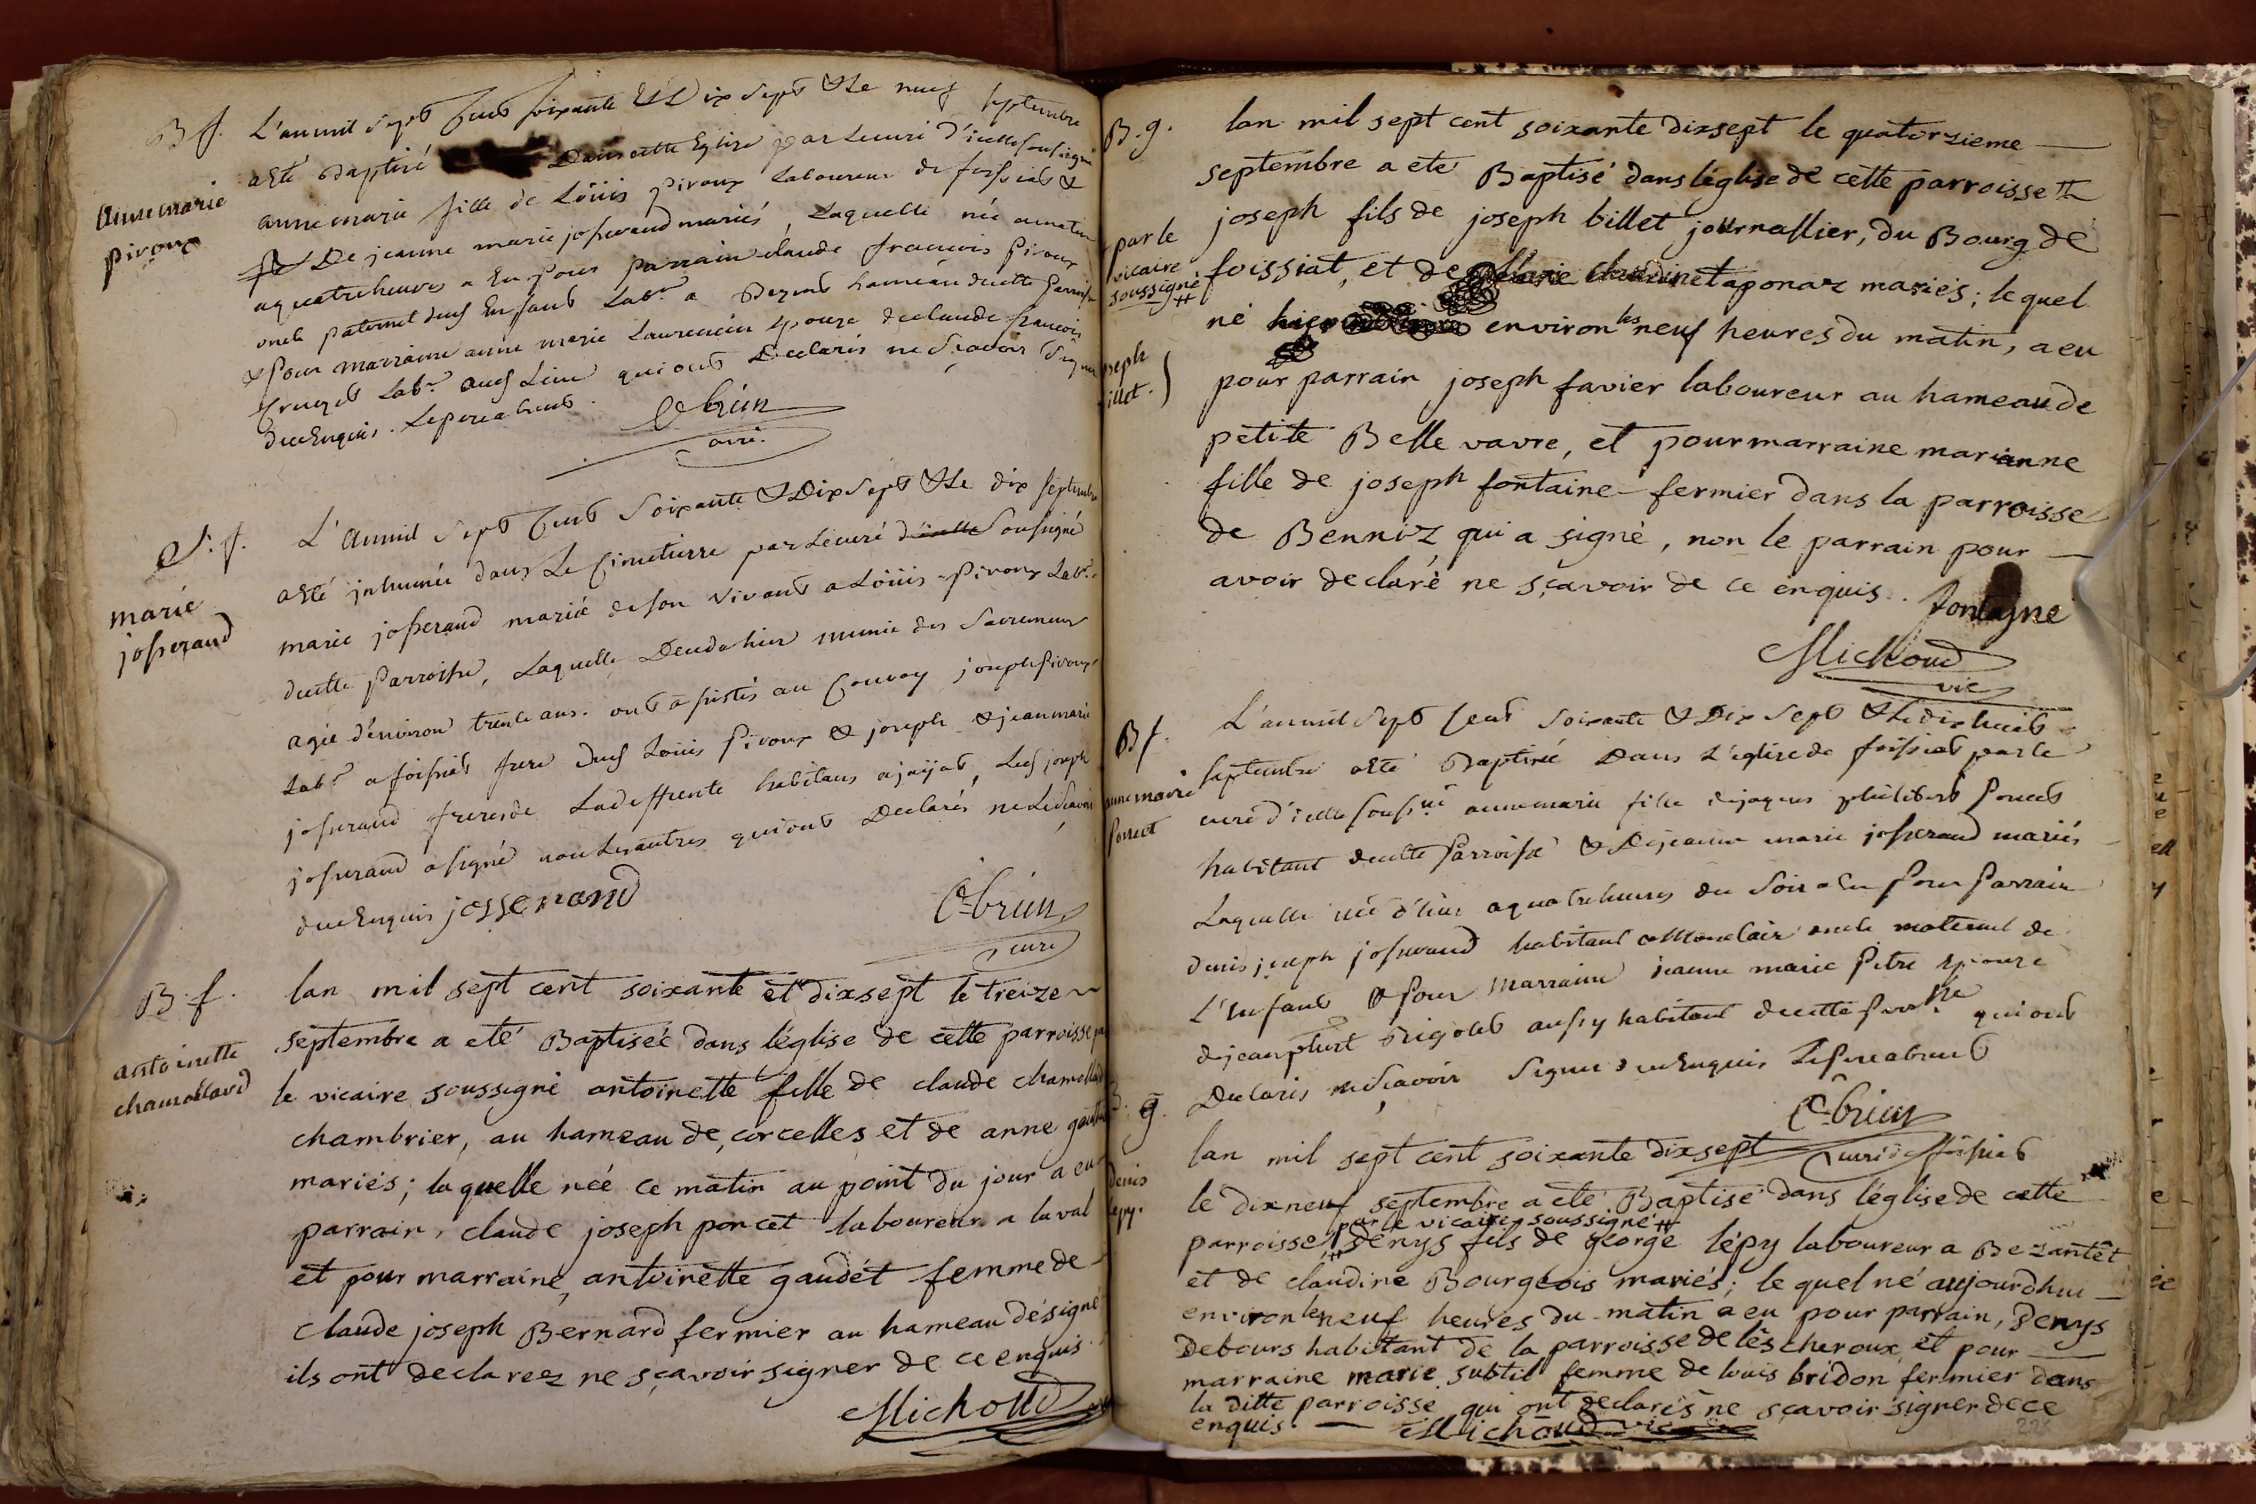 B f. L'an mil sept Cent soixante Et Dix sept & Le neuf septembre
a Eté Baptisé Dans cette Eglise par Le curé d'icelle soussigné
anne marie
pivoux
anne marie fille de Loüis pivoux Laboureur de foissiat &
De jeanne marie josserand mariés, Laquelle née
a quatre heures a Eu pour parrain claude francois pivoux
oncle paternel dud Enfant Lab.r a hameau de cette parroisse
& pour marraine anne marie Laurencin Epouze de claude francois
Lab.r aud Lieu qui ont Declarés ne sçavoir signer
de ce Enquis. Le pere absent.
C brun
curé
S. f.
marie
josserand
L'an mil sept Cent soixante & Dix sept & Le dix septembre
a Eté inhumée dans Le Cimetierre par Le curé d'icelle soussigné
marie josserand mariée de son vivant a Loüis pivoux Lab.r
de cette parroisse, Laquelle Decedа hier munie des sacremens
agée d'environ trente ans. ont assistés au Convoy joseph pivoux
Lab.r a foissiat frere dud Loüis pivoux & joseph & jean marie
josserand freres de La deffunte habitans a jayat, Led joseph
josserand a signé non Les autres qui ont Declarés ne Le sçavoir
de ce Enquis josserand
C brun
curé
B. f.
antoinette
chamoelard
lan mil sept cent soixante et dixsept le treize
septembre a eté Baptiseé dans léglise de cette parroisse par
le vicaire soussigné antoinette fille de claude
chambrier, au hameau de corcelles et de anne
mariés; laquelle neé ce matin au point du jour a eu
parrain, claude joseph poncet laboureur a laval
et pour marraine antoinette gaudét femme de
claude joseph Bernard fermier au hameau désigné
ils ont declareez ne sçavoir signer de ce enquis
Michoud
B. g.
lan mil sept cent soixante dixsept le quatorzieme
septembre a eté Baptisé dans léglise de cette parroisse #
par le
vicaire
soussigné
#
joseph fils de joseph billet journallier, du Bourg de
foissiat, et de Marie claudine taponaz mariés; lequel
né hier environ les neuf heures du matin, a eu
seph
illet.
pour parrain joseph favier laboureur au hameau de
petite Belle vavre, et pour marraine marianne
fille de joseph fontaine fermier dans la parroisse
de Benniz qui a signé, non le parrain pour
avoir declaré ne sçavoir de ce enquis.
fontayne
Michoud
vic
B f.
anne marie
Poncet
L'an mil sept Cent soixante & Dix sept & Le dix huit
septembre a Eté Baptisée Dans L'eglise de foissiat par le
curé d'icelle souss.né anne marie fille de jaques philibert Poncet
habitant de cette Parroisse & De jeanne marie josserand mariés
Laquelle née d'hier a quatre heures du soir a Eu pour Parrain
denis joseph josserand habitant a Monclair oncle maternel de
L'Enfant & pour Marraine jeanne marie Pitre Epouze
de jean Rigolet aussy habitant de cette parr.sse qui ont
Declarés ne sçavoir signer de ce Enquis Le pere absent
C brun
curé de foissiat
B. g.
denis
lepy.
lan mil sept cent soixante dixsept
le dixneuf septembre a eté Baptisé dans léglise de cette
par le vicaire soussigné #
parroisse # denys fils de george lépy laboureur a Bezantêt
et de claudine Bourgeois mariés; lequel né aujourdhui
environ les neuf heures du matin a eu pour parrain, Denys
Debours habitant de la parroisse de lescheroux, et pour
marraine marie subtil femme de louis bridon fermier dans
la ditte parroisse qui ont declarés ne sçavoir signer de ce
enquis. Michoud vicaire